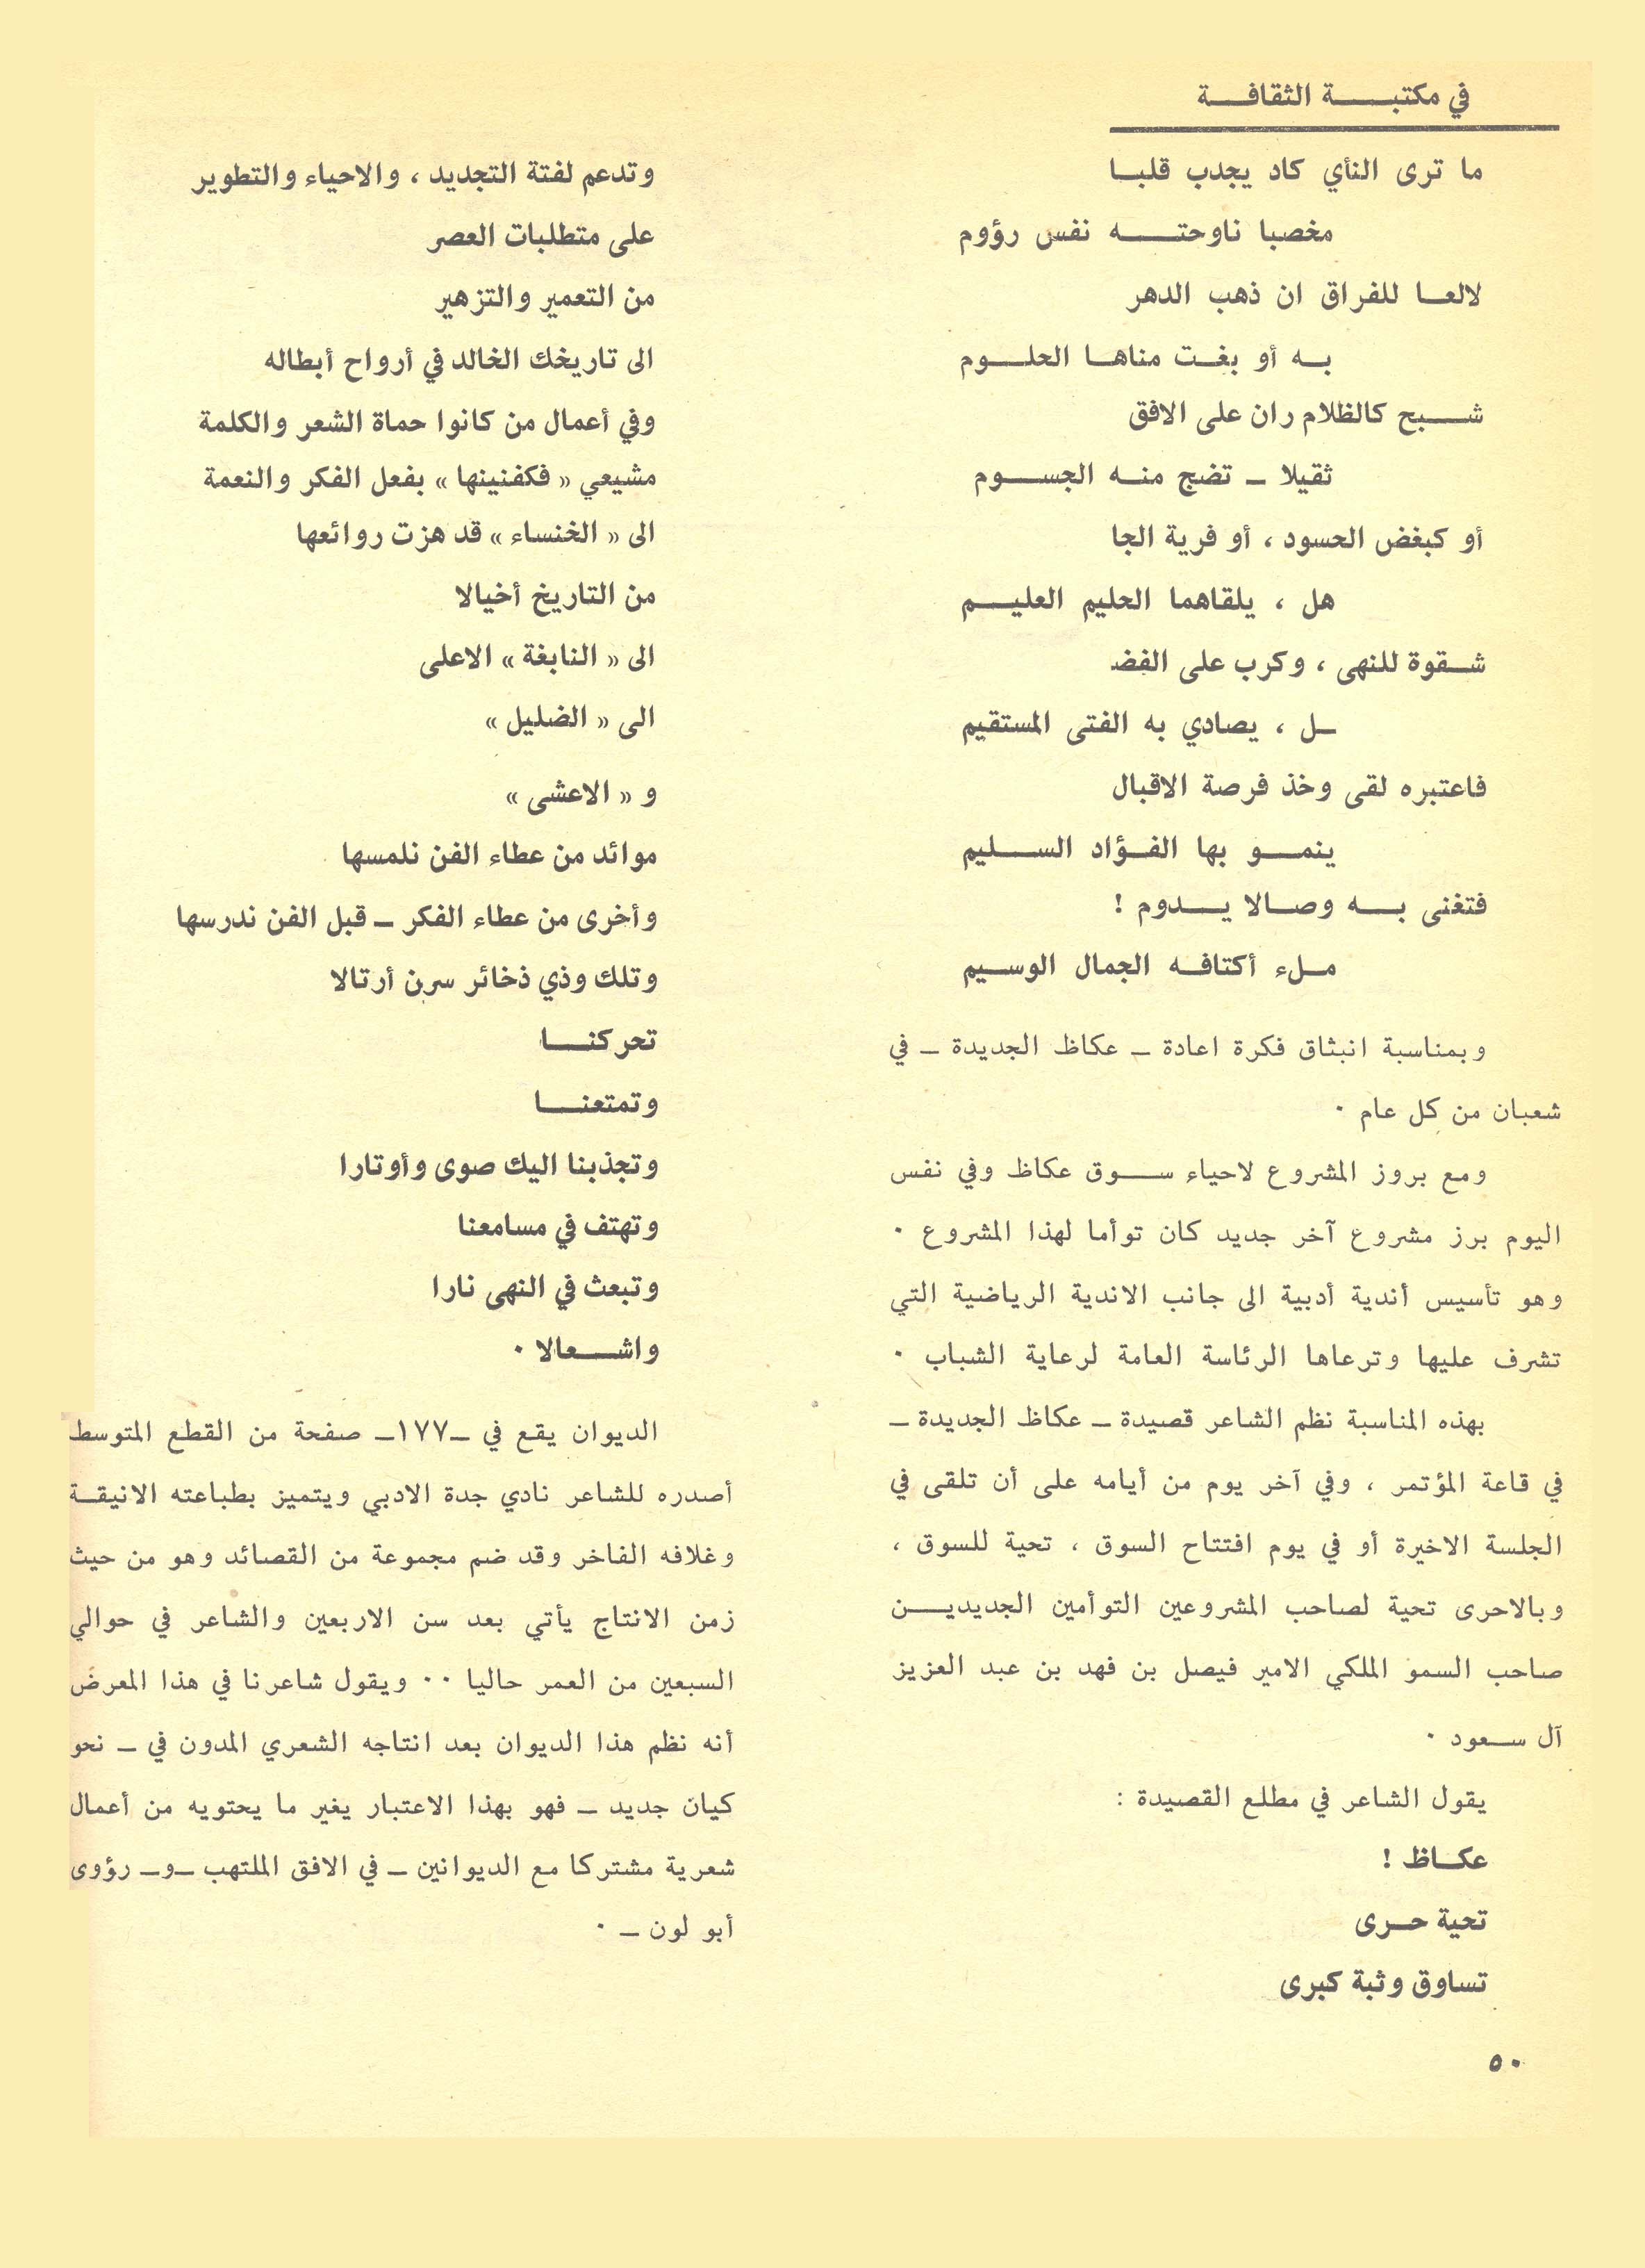 في مكتبة الثقافة
ما ترى النأي كاد يجدب قلبا
مخصبا ناوحته نفس رؤوم
لالعا للفراق ان ذهب الدهر
به أو بغت مناها الحلوم
شبح كالظلام ران على الافق
ثقيلا – تضج منه الجسوم
أو كبغض الحسود ، أو فرية الجا
هل ، يلقاهما الحليم العليم
شقوة للنهى ، وكرب على الفضـ
ـل ، يصادي به الفتى المستقيم
فاعتبره لقى وخذ فرصة الاقبال
ينمو بها الفؤاد السليم
فتغنى به وصالا يدوم !
ملء أكتافه الجمال الوسيم
وبمناسبة انبثاق فكرة اعادة – عكاظ الجديدة – في
شعبان من كل عام .
ومع بروز المشروع لاحياء سوق عكاظ وفي نفس
اليوم برز مشروع آخر جديد كان توأما لهذا المشروع .
وهو تأسيس أندية أدبية الى جانب الاندية الرياضية التي
تشرف عليها وترعاها الرئاسة العامة لرعاية الشباب .
بهذه المناسبة نظم الشاعر قصيدة – عكاظ الجديدة –
في قاعة المؤتمر ، وفي آخر يوم من أيامه على أن تلقى في
الجلسة الاخيرة أو في يوم افتتاح السوق ، تحية للسوق ،
وبالاحرى تحية لصاحب المشروعين التوأمين الجديديـن
صاحب السمو الملكي الامير فيصل بن فهد بن عبد العزيز
آل سعود .
يقول الشاعر في مطلع القصيدة :
عكاظ !
تحية حرى
تساوق وثبة كبرى
وتدعم لفتة التجديد ، والاحياء والتطوير
على متطلبات العصر
من التعمير والتزهير
الى تاريخك الخالد في أرواح أبطاله
وفي أعمال من كانوا حماة الشعر والكلمة
مشيعي « فكفنينها » بفعل الفكر والنعمة
الى « الخنساء » قد هزت روائعها
من التاريخ أخيالا
الى « النابغة » الاعلى
الى « الضليل »
و « الاعشى »
موائد من عطاء الفن نلمسها
وأخرى من عطاء الفكر – قبل الفن ندرسها
وتلك وذي ذخائر سرن أرتالا
تحركنا
وتمتعنا
وتجذبنا اليك صوى وأوتارا
وتهتف في مسامعنا
وتبعث في النهى نارا
واشعالا .
الديوان يقع في –١٧٧– صفحة من القطع المتوسط
أصدره للشاعر نادي جدة الادبي ويتميز بطباعته الانيقة
وغلافه الفاخر وقد ضم مجموعة من القصائد وهو من حيث
زمن الانتاج يأتي بعد سن الاربعين والشاعر في حوالي
السبعين من العمر حاليا .. ويقول شاعرنا في هذا المعرض
أنه نظم هذا الديوان بعد انتاجه الشعري المدون في – نحو
كيان جديد – فهو بهذا الاعتبار يغير ما يحتويه من أعمال
شعرية مشتركا مع الديوانين – في الافق الملتهب –و– رؤوى
أبو لون – .
٥٠